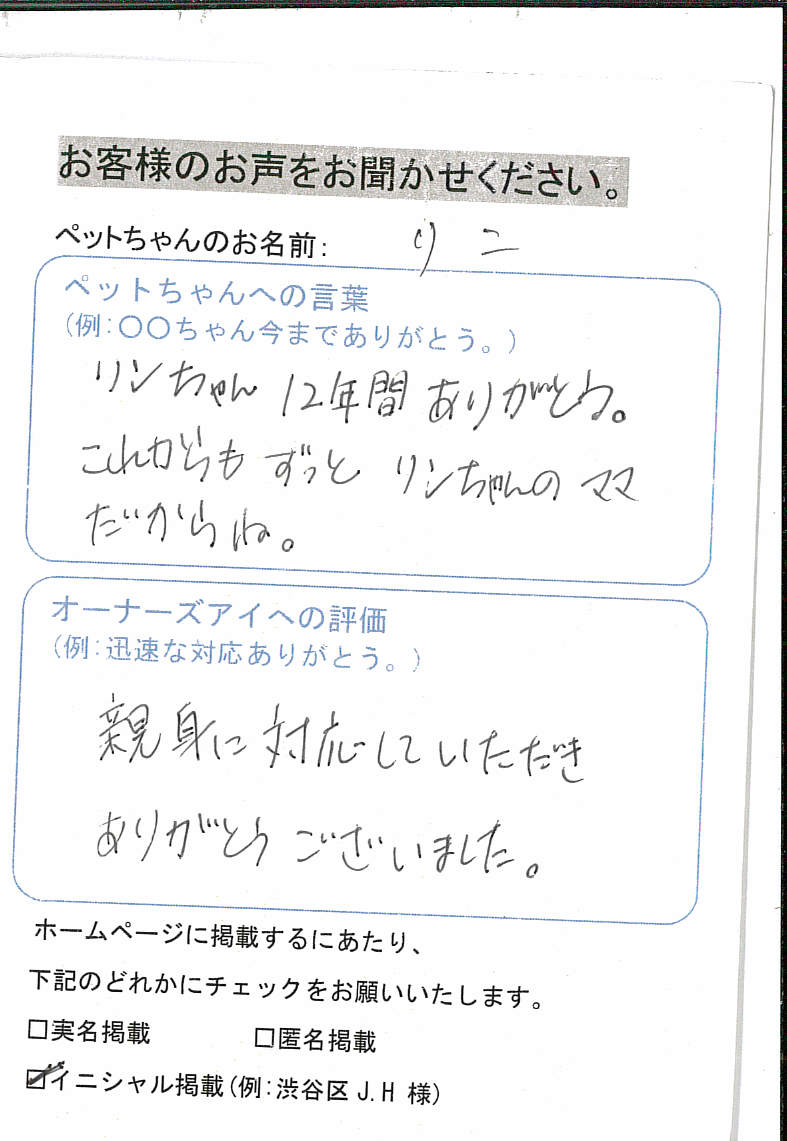 お客様のお声をお聞かせください。
ペットちゃんのお名前: リン
ペットちゃんへの言葉
(例:〇〇ちゃん今までありがとう。)
リンちゃん 12年間 ありがとう。
これからも ずっと リンちゃんの ママ
だからね。
オーナーズアイへの評価
(例:迅速な対応ありがとう。)
親身に対応していただき
ありがとう ございました。
ホームページに掲載するにあたり、
下記のどれかにチェックをお願いいたします。
□実名掲載 □匿名掲載
☑イニシャル掲載(例:渋谷区 J.H 様)